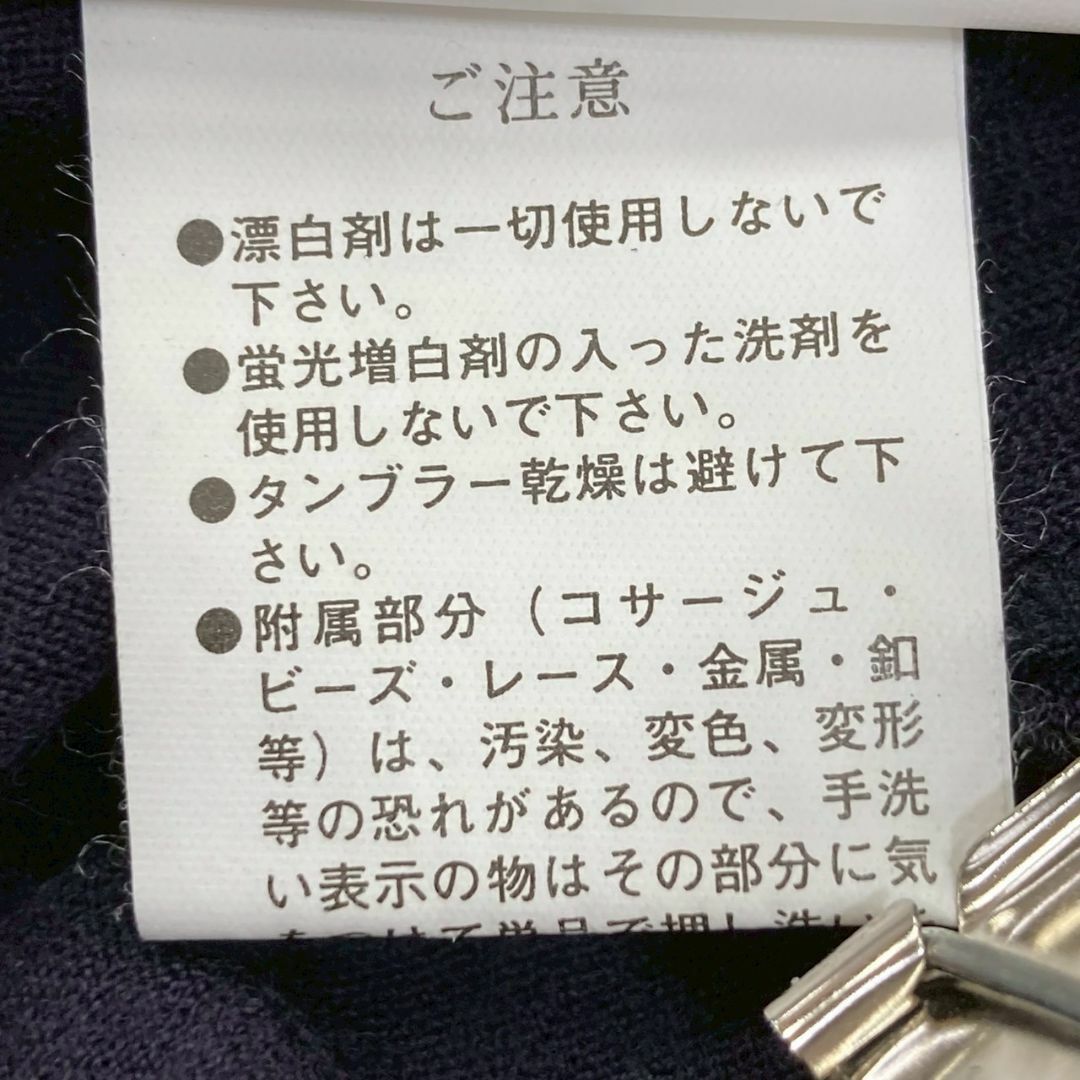 ご注意
●漂白剤は一切使用しないで
下さい。
●蛍光増白剤の入った洗剤を
使用しないで下さい。
●タンブラー乾燥は避けて下
さい。
●附属部分（コサージュ・
ビーズ・レース・金属・釦
等）は、汚染、変色、変形
等の恐れがあるので、手洗
い表示の物はその部分に気